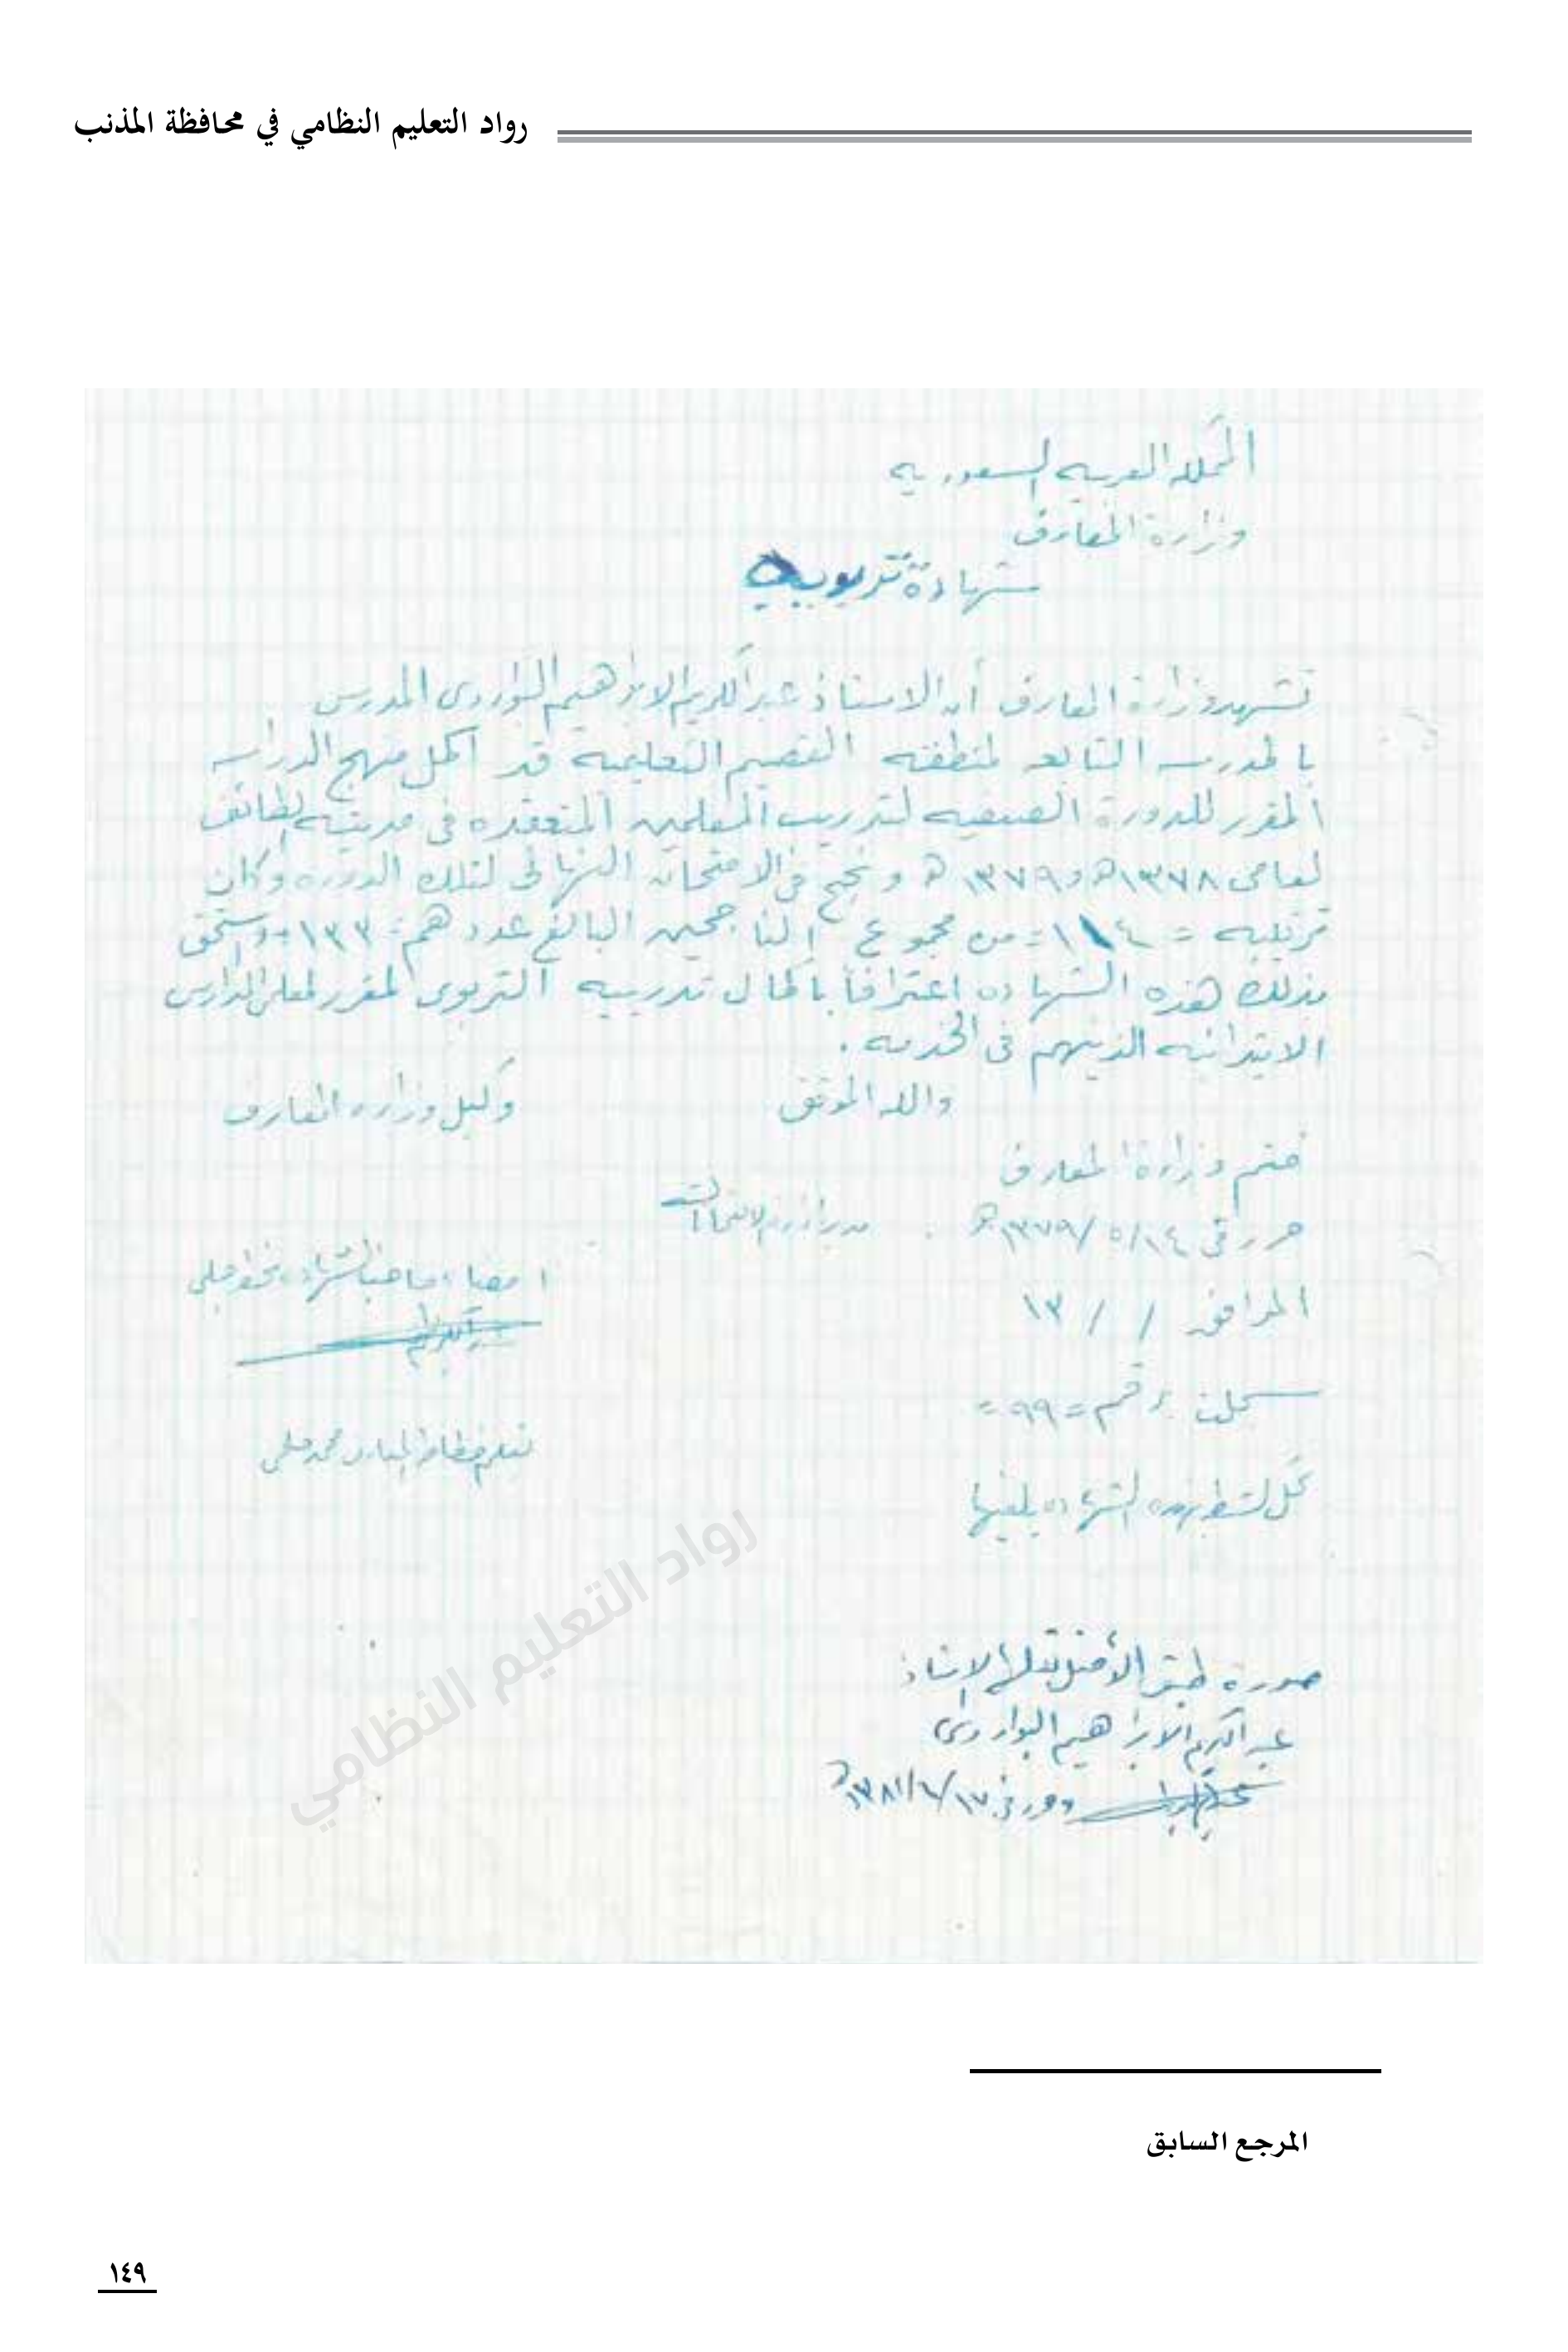 رواد التعليم النظامي في محافظة المذنب
المملكه العربيه السعوديه
وزارة المعارف
شهادة تدريبيه
تشهد وزارة المعارف أن الاستاذ عبد الكريم الابراهيم البواردى المدرس
بالمدرسه التابعه لمنطقه القصيم التعليميه قد اكمل منهج الدراسه
المقرر للدورة الصيفيه لتدريب المعلمين المنعقده فى مدينة الطائف
لعامى ١٣٧٨ه و ١٣٧٩ه ونجح فى الامتحان النهائى لتلك الدوره وكان
ترتيبه = ١١٤ = من مجموع الناجحين البالغ عددهم = ١٣٣ = واستحق
بذلك هذه الشهاده اعترافاً باكمال تدريبه التربوى المقرر لمعلمى المدارس
الابتدائيه الذين هم فى الخدمه .
والله الموفق
وكيل وزارة المعارف
ختم وزارة المعارف
حرر فى ١٤/ ٥/ ١٣٧٩ه
مدير ادارة الامتحانات
الموافق / / ١٣
امضاء صاحب الشهاده بخط جلى
سجلت برقم = ٩٩ =
كل كشط بهذه الشهاده يلغيها
صورة طبق الأصل الاستاذ
عبد الكريم الابراهيم البواردى
وحرر فى ١٧/٦/١٣٨١ه
رواد التعليم النظامي
المرجع السابق
١٤٩